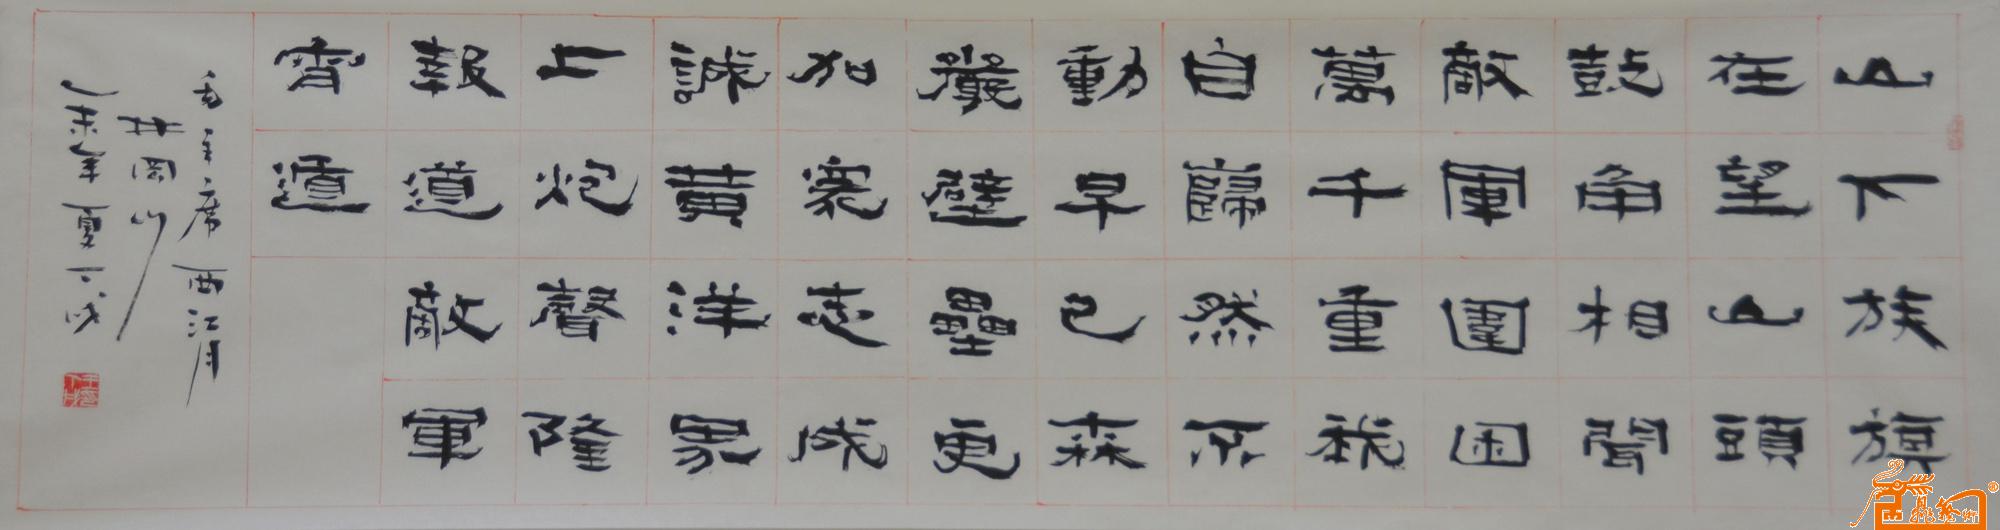 山下族旗
在望山頭
鼓角相聞
敵軍圍困
萬千重我
自巋然不
動早已森
嚴壁壘更
加衆志成
誠黃洋界
上炮聲隆
報道敵軍
宵遁
毛主席西江月
井岡山
乙未年夏